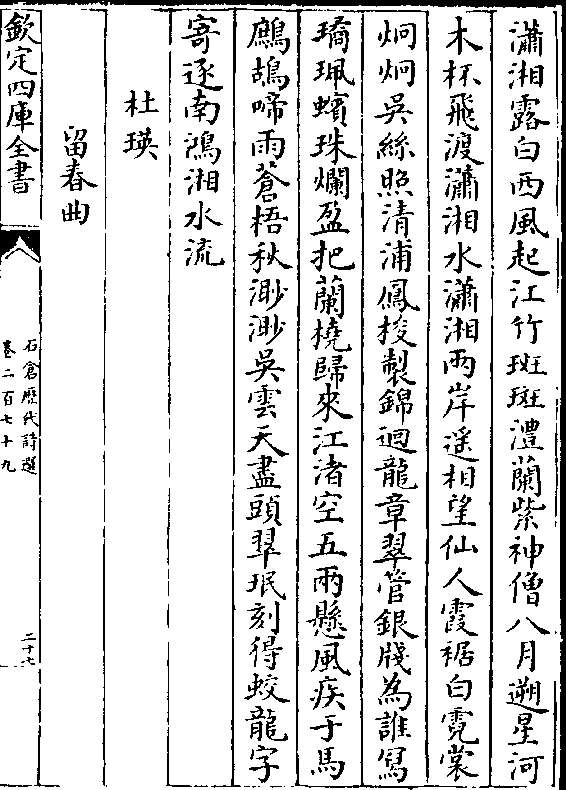 瀟湘露白西風起江竹斑斑澧蘭紫神僧八月遡星河
木杯飛渡瀟湘水瀟湘兩岸遥相望仙人霞裾白霓裳
炯炯吳絲照清浦鳳梭製錦迴龍章翠管銀牋為誰寫
璚珮蠙珠爛盈把蘭橈歸來江渚空五兩懸風疾于馬
鷓鴣啼雨蒼梧秋渺渺吳雲天盡頭翠珉刻得蛟龍字
寄逐南鴻湘水流
杜瑛
留春曲
欽定四庫全書
石倉歴代詩選
卷二百七十九